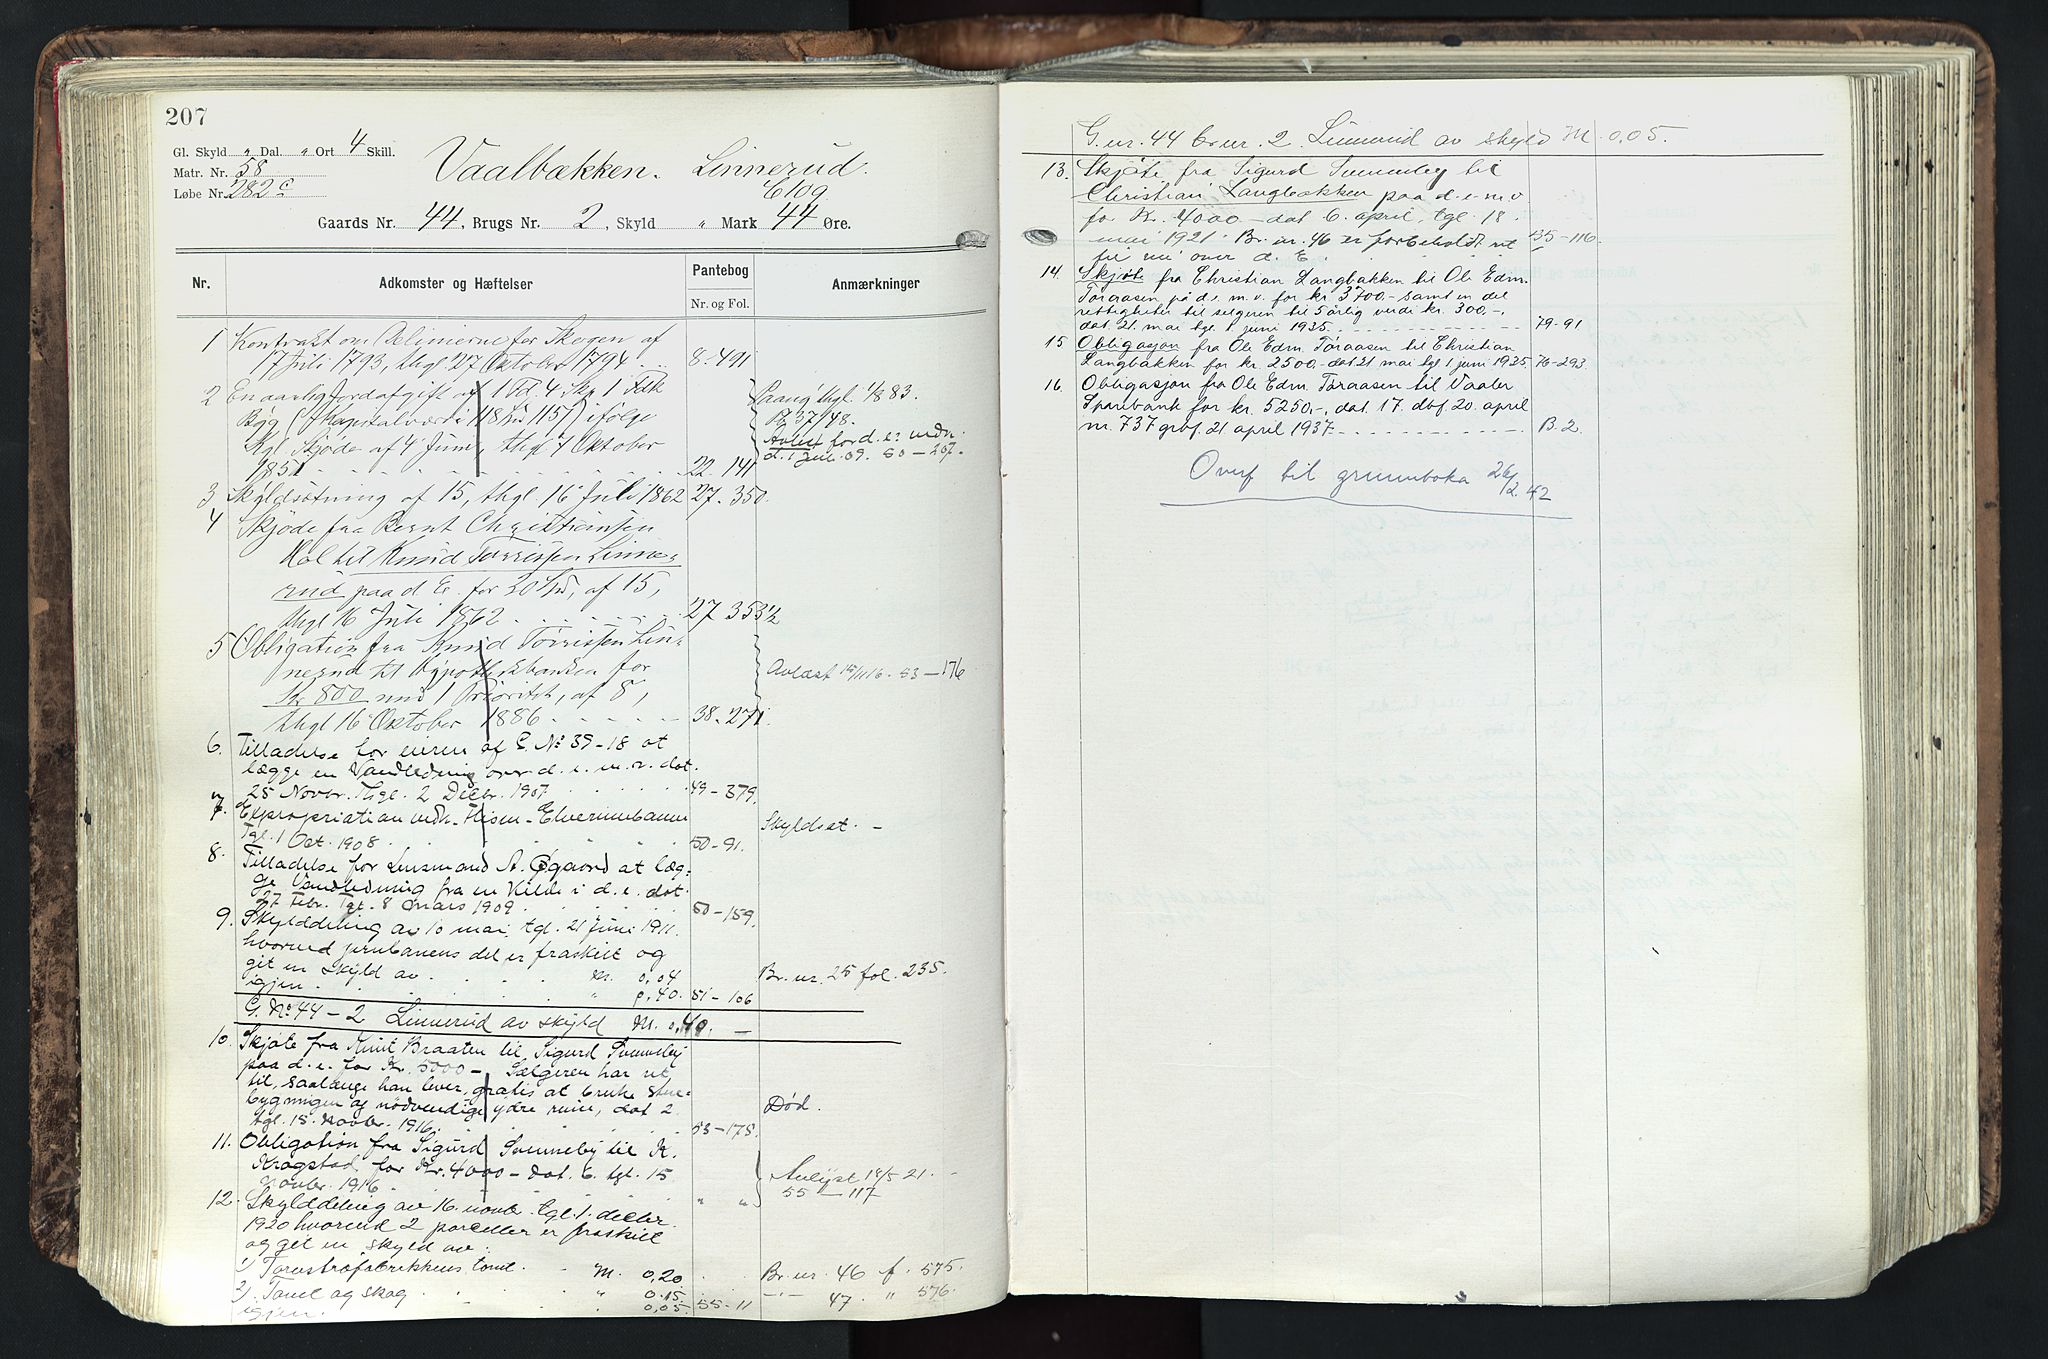 207
Gl. Skyld „ Dal. „ Ort 4 Skill.
Matr. Nr. 58
Løbe Nr. 282 c
Vaalbækken. Linnerud.
Gaards Nr. 44, Brugs Nr. 2, Skyld „ Mark 44 Øre.
Nr. Adkomster og Hæftelser Pantebog Anmærkninger
Nr. og Fol.
1 Kontrakt om Delinierne for Skogen af
17 Juli 1793, thgl. 27 Oktober 1794 8-491
2 En aarlig Jordafgift af 1 Td. 4 Skp 1 Fdk
Byg ifølge
Kgl. Skjøde af 4 Juni, thgl 7 Oktober
1851 22 141
Paaanr thgl. 1/8 83.
B 37/48.
Avløst for d. e. vedk.
50-207.
3 Skyldsætning af 15, thgl. 16 Juli 1862 27-350
4 Skjøde fra Bernt Christiansen
Hol til Knud Torrissen Linne-
rud paa d E. for 20 Spd, af 15,
thgl 16 Juli 1862 27 353½
5 Obligation fra Knud Torrissen Lin-
nerud til Hypothekbanken for
Kr 800 med 1 Prioritet, af 8,
thgl 16 Oktober 1886 38-271
Avlæst 15/11 16. 53-176
6. Tilladelse for eieren af G. No 39-18 at
lægge en Vandledning over d. e. m. v. dat.
25 Novbr. Thgl. 2 Decbr. 1907 49-379.
7. Expropriation vedk. Flisen-Elverumbanen
Tgl. 1 Oct. 1908 50-91.
Skyldsat. -
8. Tilladelse for Lensmand A. Øgaard at læg-
ge Vandledning fra en Kilde i d. e. dat.
27 Febr. Tgl. 8 Mars 1909 50-159.
9. Skylddeling av 10 mai, tgl. 21 juni 1911.
hvorved jernbanens del er fraskilt og
git en skyld av M. 0,04 Br. nr. 25 fol. 235.
igjen „ 0,40. 51-106
G. No. 44-2 Linnerud av skyld M. 0,40. -
10. Skjøte fra Knut Braaten til Sigurd Svenneby
paa d. e. for Kr. 5000- Sælgeren har ret
til, saalænge han lever, gratis at bruke stue-
bygningen og nødvendige ydre rum, dat 2
tgl. 15. novbr. 1916. 53-175.
Død.
11. Obligation fra Sigurd Svenneby til K.
Kragstad for Kr. 4000- dat. 6. tgl. 15
novbr. 1916 „ „
Avlyst 18/5 21. -
55-117
12. Skylddeling av 16. novbr. tgl. 1. decbr.
1920 hvorved 2 parceller er fraskilt
og git en skyld av:
1) Torvstrøfabrikkens tomt. M. 0,20 Br. nr. 46 f. 575.
2) og skog „ 0.15. -„- 47 „ 576.
igjen. „ 0,05. 55-11
G. nr. 44 br. nr. 2. Linnerud av skyld M. 0,05.
13. Skjøte fra Sigurd Svenneby til
Christian Langbakken paa d. e. m. v
for Kr. 4000- dat 6. april, tgl. 18.
mai 1921. Br. nr. 46 er forbeholdt ret 55-116.
til vei over d. E.
14. Skjøte fra Christian Langbakken til Ole Edm.
Toraasen på d. e. m. v. for kr. 3700.- samt en del
rettigheter til selgeren til 5 årlig verdi kr. 300,-,
dat. 21. mai tgl. 1. juni 1935. 79-91
15. Obligasjon fra Ole Edm. Toraasen til Christian
Langbakken for kr. 2500.- dat. 21 mai tgl 1. juni 1935. 76-293
16. Obligasjon fra Ole Edm. Toraasen til Vaaler
Sparebank for kr. 5250.-, dat. 17. dbf. 20. april
nr. 737 grbf. 21. april 1937. B. 2.
Overf til grunnboka 26/2.42